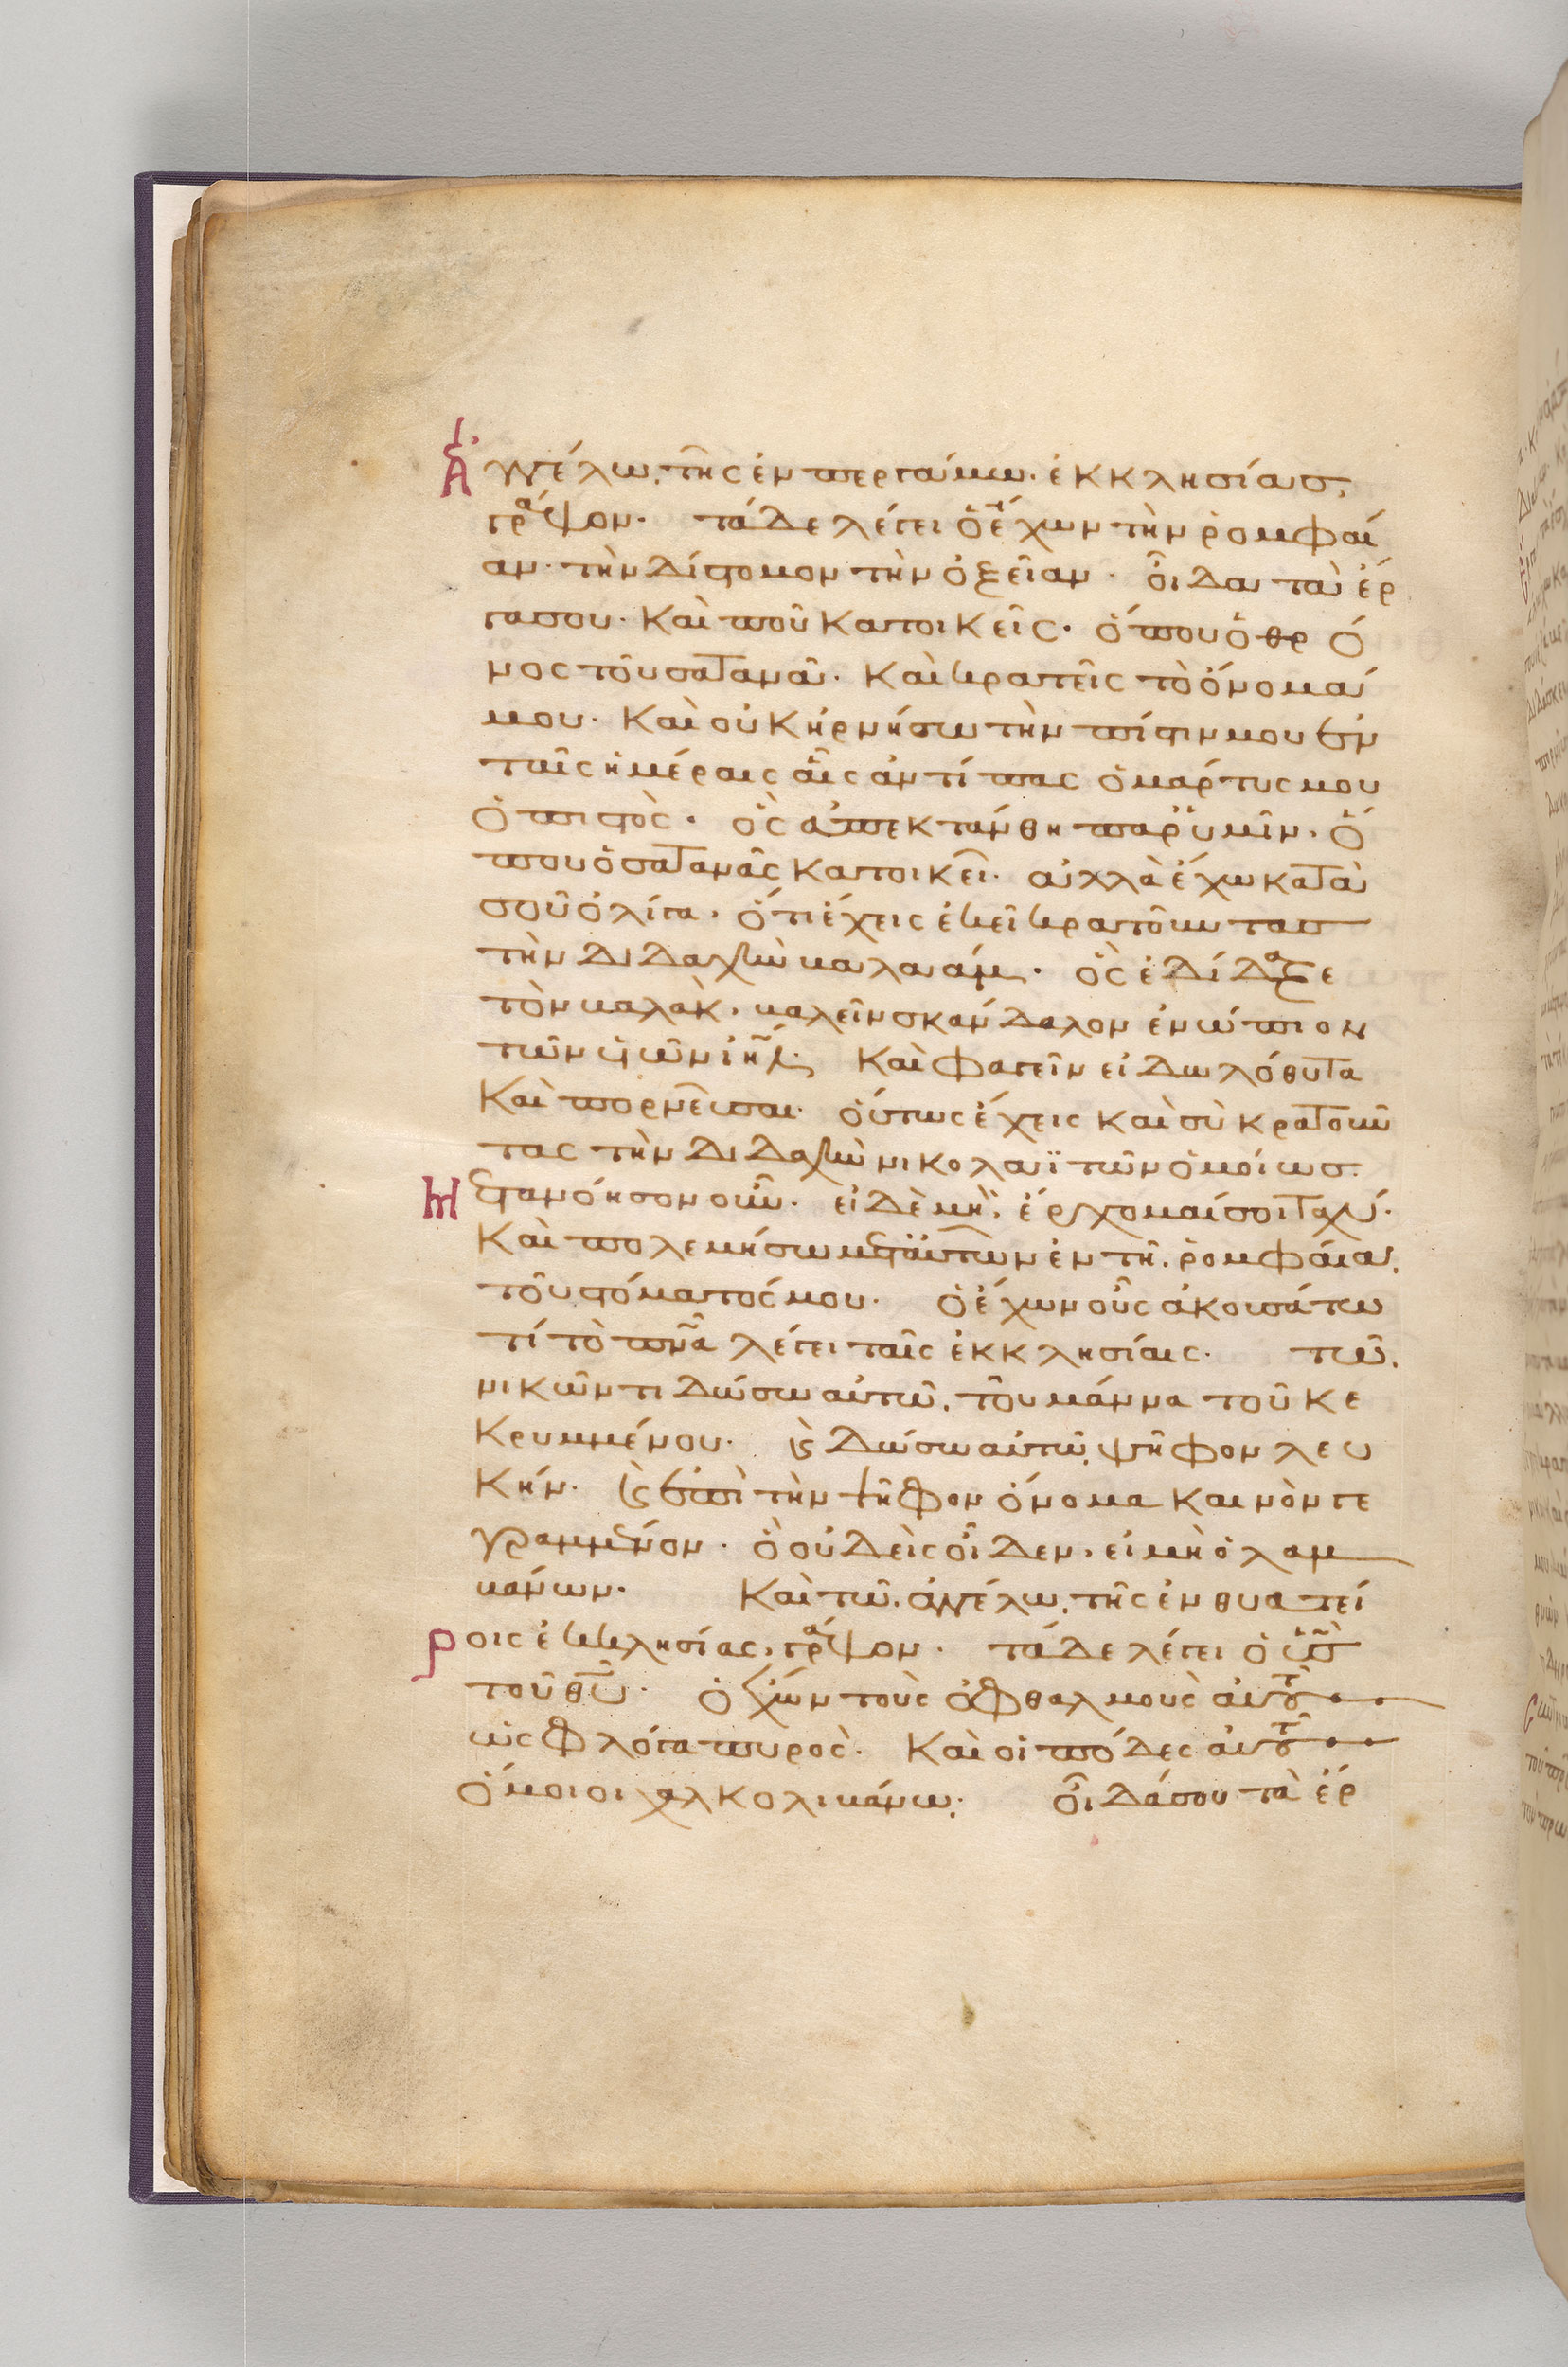 Ἀγγέλω, τῆς ἐν περγάμω. ἐκκλησίας,
γράψον· τάδε λέγει ὁ ἔχων τὴν ῥομφαί
αν· τὴν δίστομον τὴν ὀξεῖαν· οἶδα τὰ ἔρ
γα σου· καὶ ποῦ κατοικεῖς· ὅπου ὁ θρό
νος τοῦ σατανᾶ· καὶ κρατεῖς τὸ ὄνομά
μου· καὶ οὐκ ἠρνήσω τὴν πίστιν μου ἐν
ταῖς ἡμέραις αἷς ἀντίπας ὁ μάρτυς μου
ὁ πιστὸς· ὃς ἀπεκτάνθη παρ' ὑμῖν, ὅ
που ὁ σατανᾶς κατοικεῖ· ἀλλὰ ἔχω κατὰ
σοῦ ὀλίγα, ὅτι ἔχεις ἐκεῖ κρατοῦντας
τὴν διδαχὴν βαλαάμ· ὃς ἐδίδαξε
τὸν βαλὰκ, βαλεῖν σκάνδαλον ἐνώπιον
τῶν υἱῶν ἰηλ· καὶ φαγεῖν εἰδωλόθυτα
καὶ πορνεῦσαι· οὕτως ἔχεις καὶ σὺ κρατοῦν
τας τὴν διδαχὴν νικολαϊτῶν ὁμοίως·
Μετανόησον οὖν· εἰ δὲ μὴ, ἔρχομαί σοι ταχύ·
καὶ πολεμήσω μετ' αὐτῶν ἐν τῆ, ῥομφάια,
τοῦ στόματός μου· ὁ ἔχων οὖς ἀκουσάτω
τί τὸ πνα λέγει ταῖς ἐκκλησίαις· τῶ,
νικῶντι δώσω αὐτῶ, τοῦ μάννα τοῦ κε
κρυμμένου· ϗ δώσω αὐτῶ, ψῆφον λευ
κήν· ϗ ἐπὶ τὴν ψῆφον ὄνομα καινὸν γε
γραμμένον· ὃ οὐδεὶς οἶδεν, εἰ μὴ ὁ λαμ
βάνων· Καὶ τῶ, ἀγγέλω, τῆς ἐν θυατεί
ροις ἐκκλησίας, γράψον· τάδε λέγει ὁ υς
τοῦ θυ· ὁ ἔχων τοὺς ὀφθαλμοὺς αὐτοῦ
ὡς φλόγα πυρὸς· καὶ οἱ πόδες αὐτοῦ
ὅμοιοι χαλκολιβάνω, οἶδά σου τὰ ἔρ